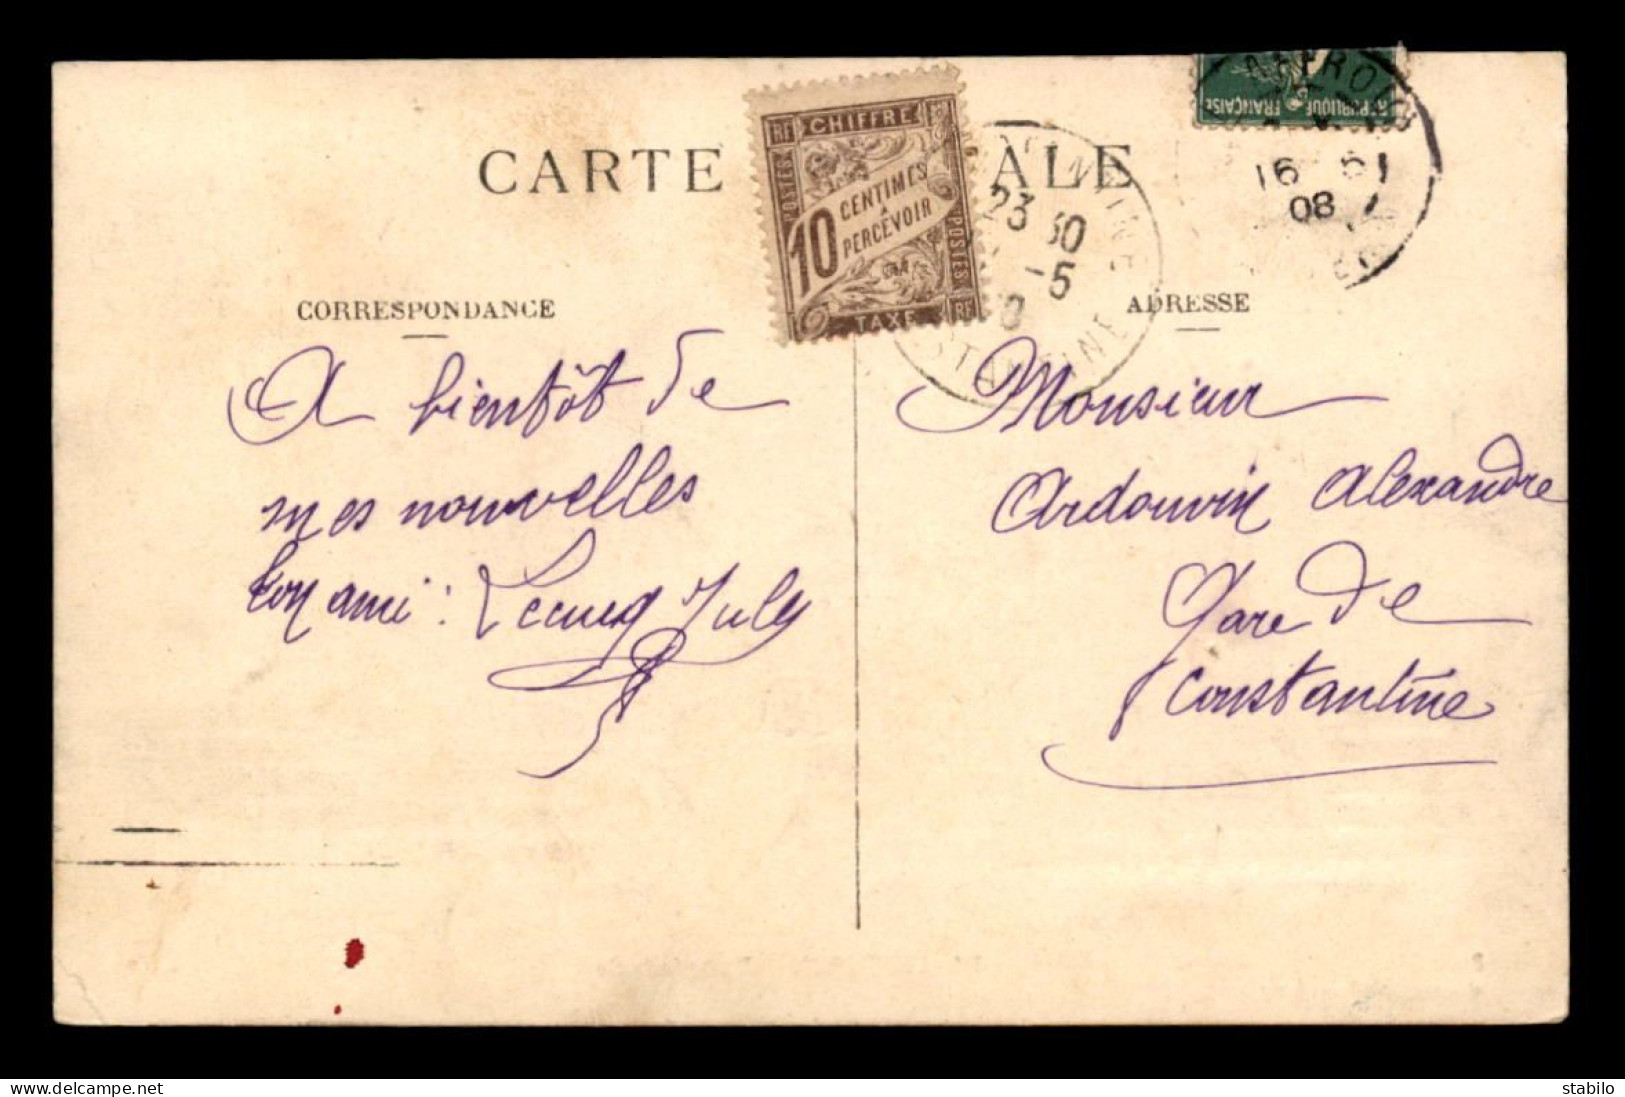 CARTE ALE
CHIFFRE
RF
POSTES
10 CENTIMES
A
PERCEVOIR
POSTES
TAXE
RF
REPUBLIQUE FRANÇAISE
16 5
08
23 30
-5
CORRESPONDANCE
ADRESSE
A bientôt de
mes nouvelles
ton ami : Lecucq Jules
Monsieur
Ardouvin Alexandre
Gare de
Constantine
delcampe.net
stabilo